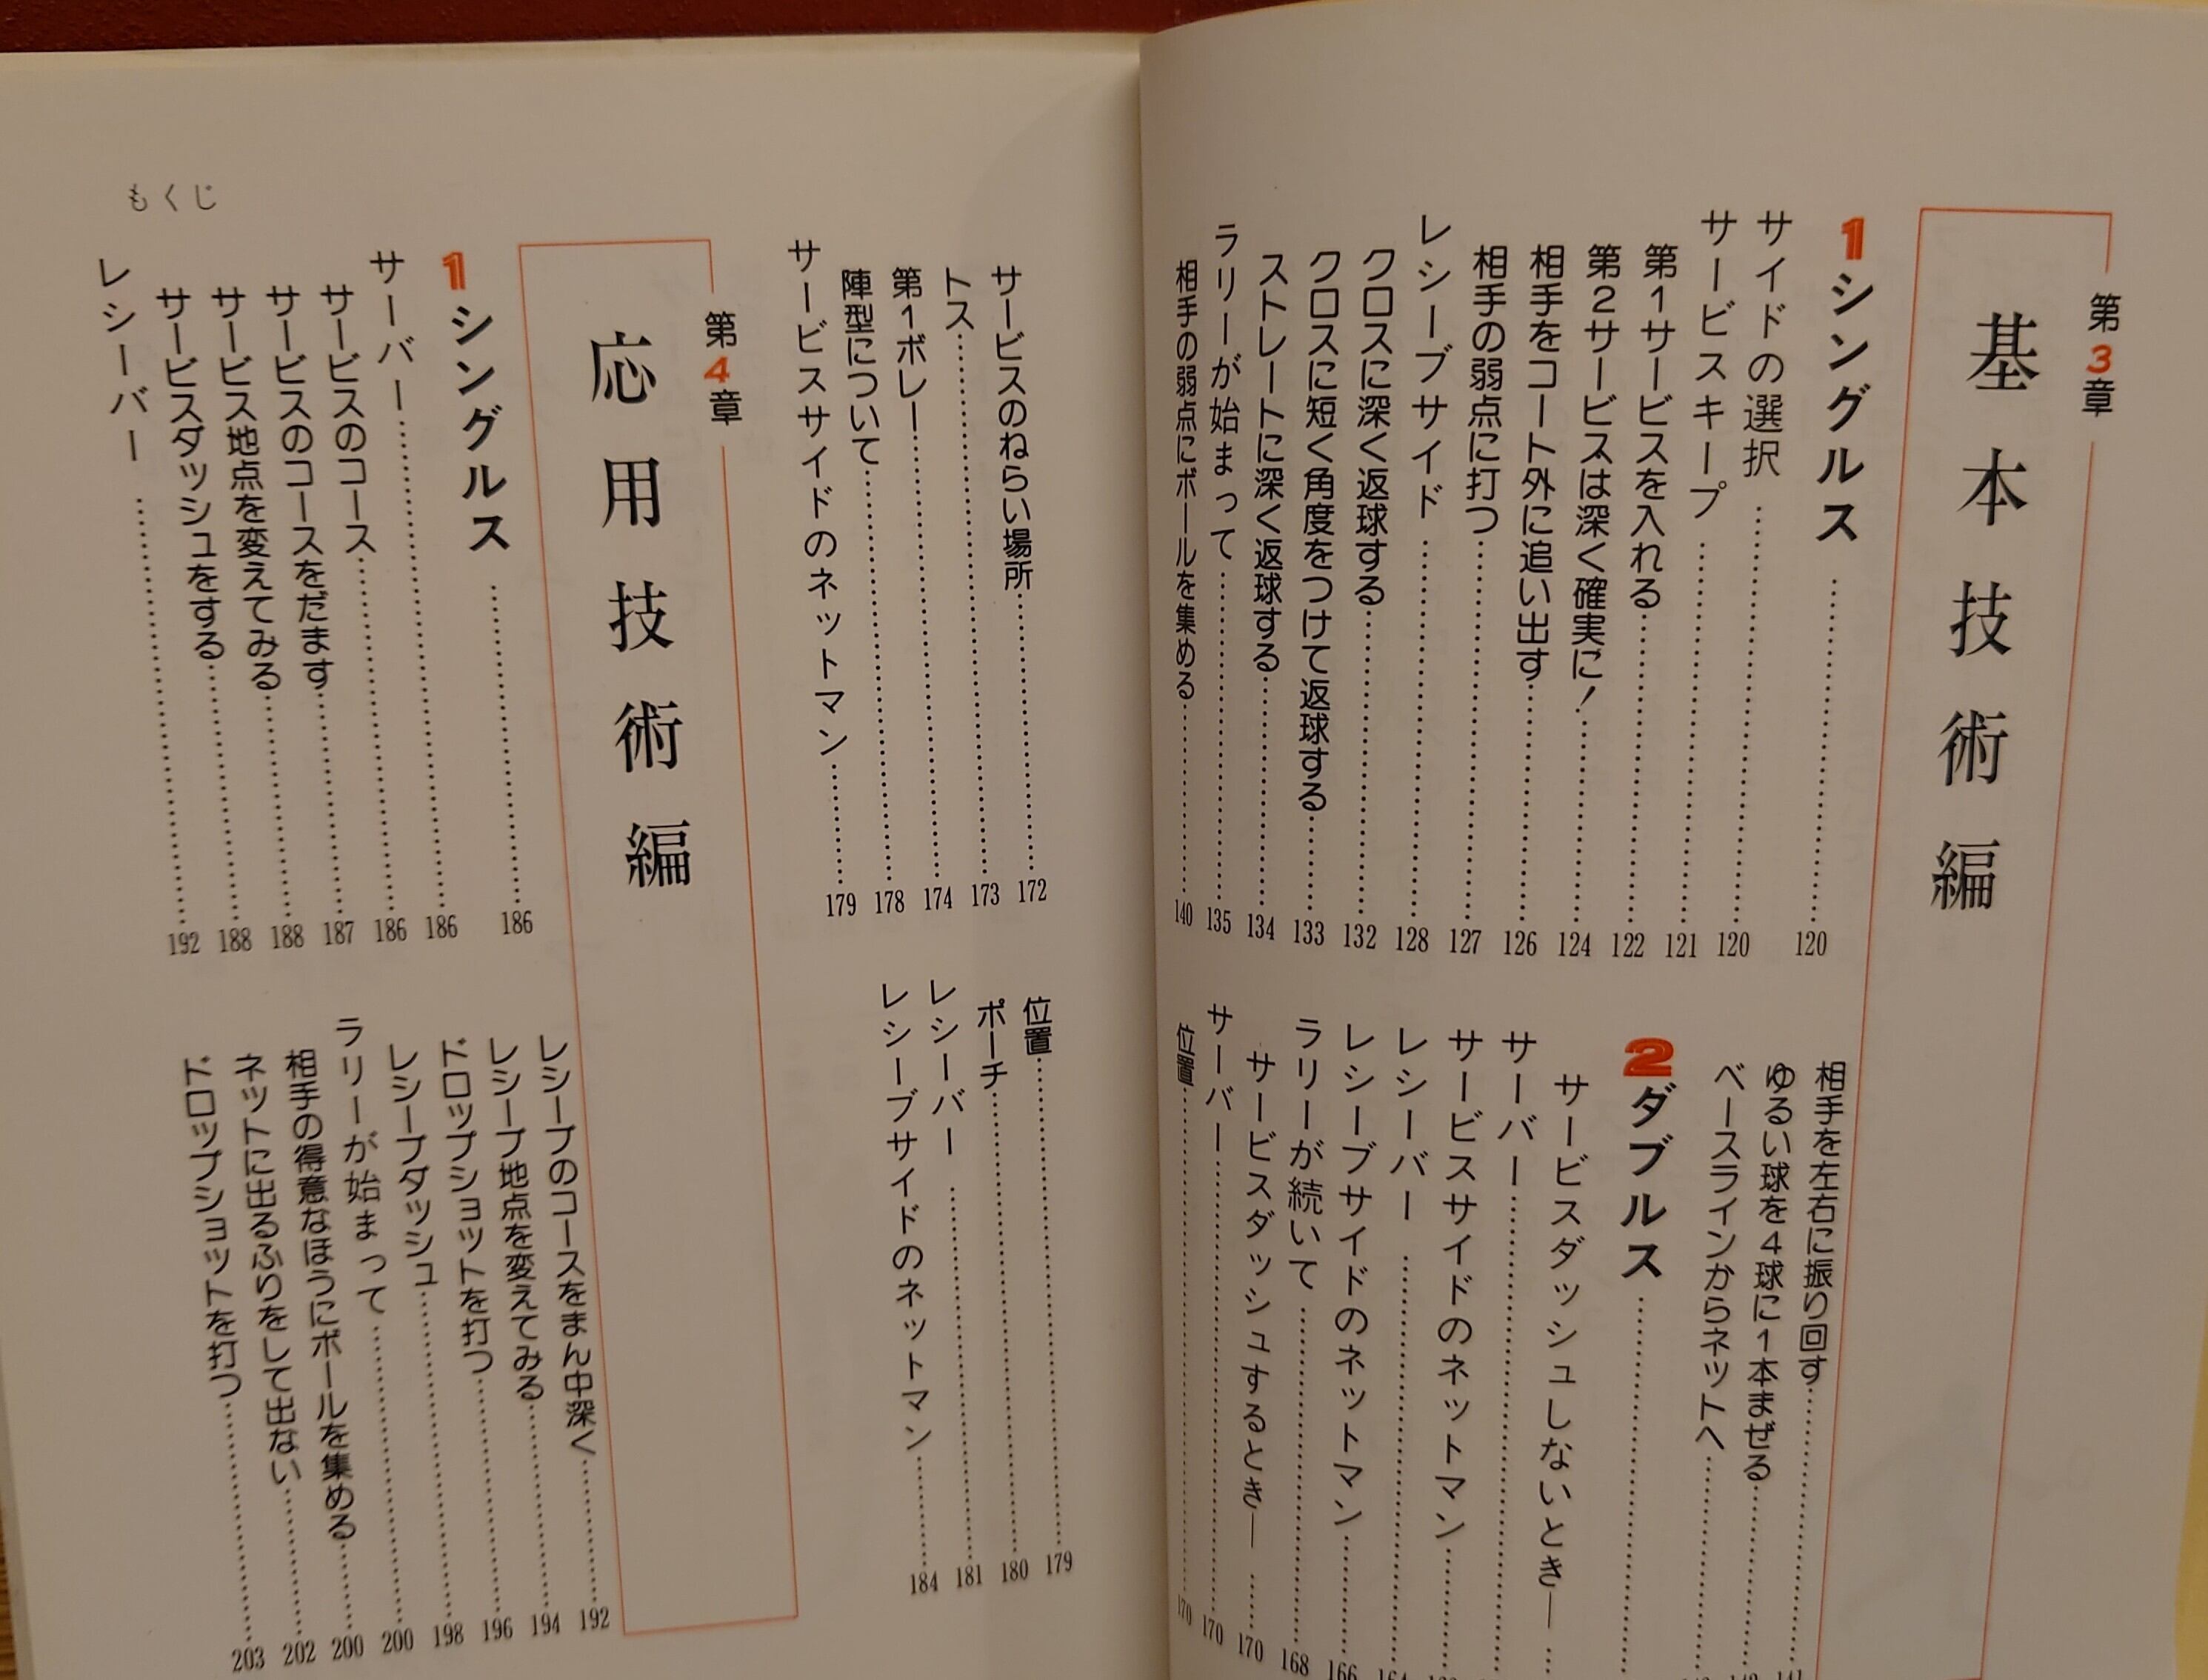 第3章
基本技術編
1シングルス……120
サイドの選択……120
サービスキープ……121
第1サービスを入れる……122
第2サービスは深く確実に!……124
相手をコート外に追い出す……126
相手の弱点に打つ……127
レシーブサイド……128
クロスに深く返球する……132
クロスに短く角度をつけて返球する……133
ストレートに深く返球する……134
ラリーが始まって……135
相手の弱点にボールを集める……140
相手を左右に振り回す……141
ゆるい球を4球に1本まぜる……
ベースラインからネットへ……
2ダブルス……
サービスダッシュしないとき―……
サーバー……
サービスサイドのネットマン……
レシーバー……164
レシーブサイドのネットマン……166
ラリーが続いて……168
サービスダッシュするとき―……170
サーバー……170
位置……170
サービスのねらい場所……172
トス……173
第1ボレー……174
陣型について……178
サービスサイドのネットマン……179
位置……179
ポーチ……180
レシーバー……181
レシーブサイドのネットマン……184
第4章
応用技術編
1シングルス……186
サーバー……186
サービスのコース……186
サービスのコースをだます……187
サービス地点を変えてみる……188
サービスダッシュをする……188
レシーバー……192
レシーブのコースをまん中深く……192
レシーブ地点を変えてみる……194
ドロップショットを打つ……196
レシーブダッシュ……198
ラリーが始まって……200
相手の得意なほうにボールを集める……200
ネットに出るふりをして出ない……202
ドロップショットを打つ……203
もくじ